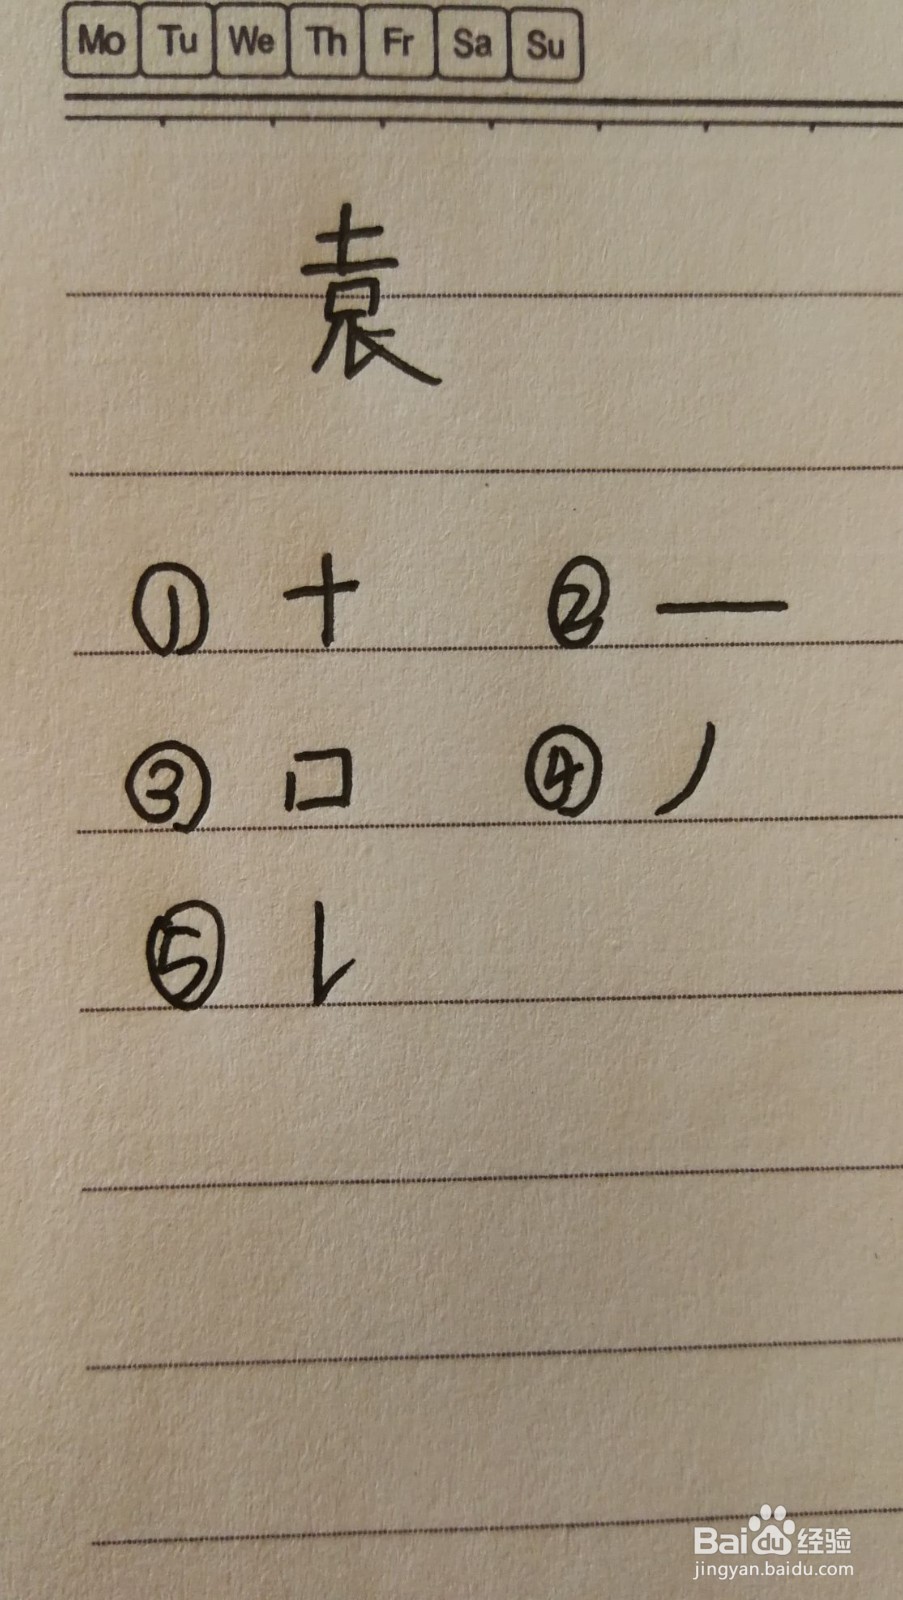 Mo Tu We Th Fr Sa Su
袁
① 十 ② 一
③ 口 ④ 丿
⑤ 𠄌
Baidu经验
jingyan.baidu.com